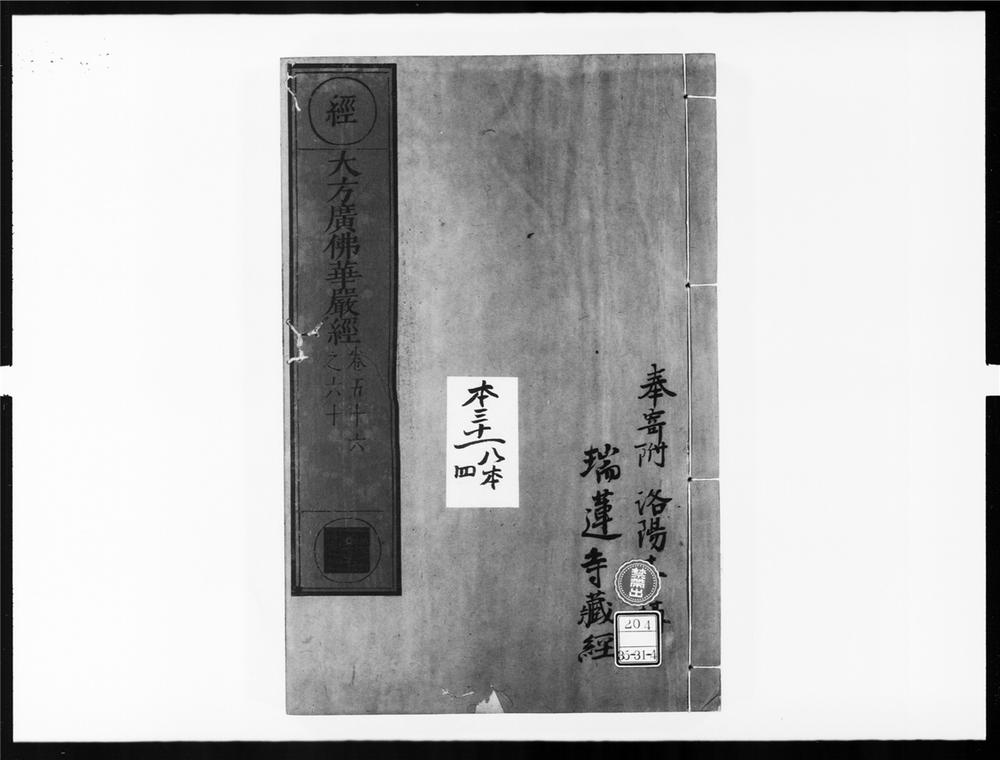 奉寄附 洛陽
瑞蓮寺藏經
禁帶出
204
35-31-4
本三十
八本
四
經
大方廣佛華嚴經
卷五十六
之六十